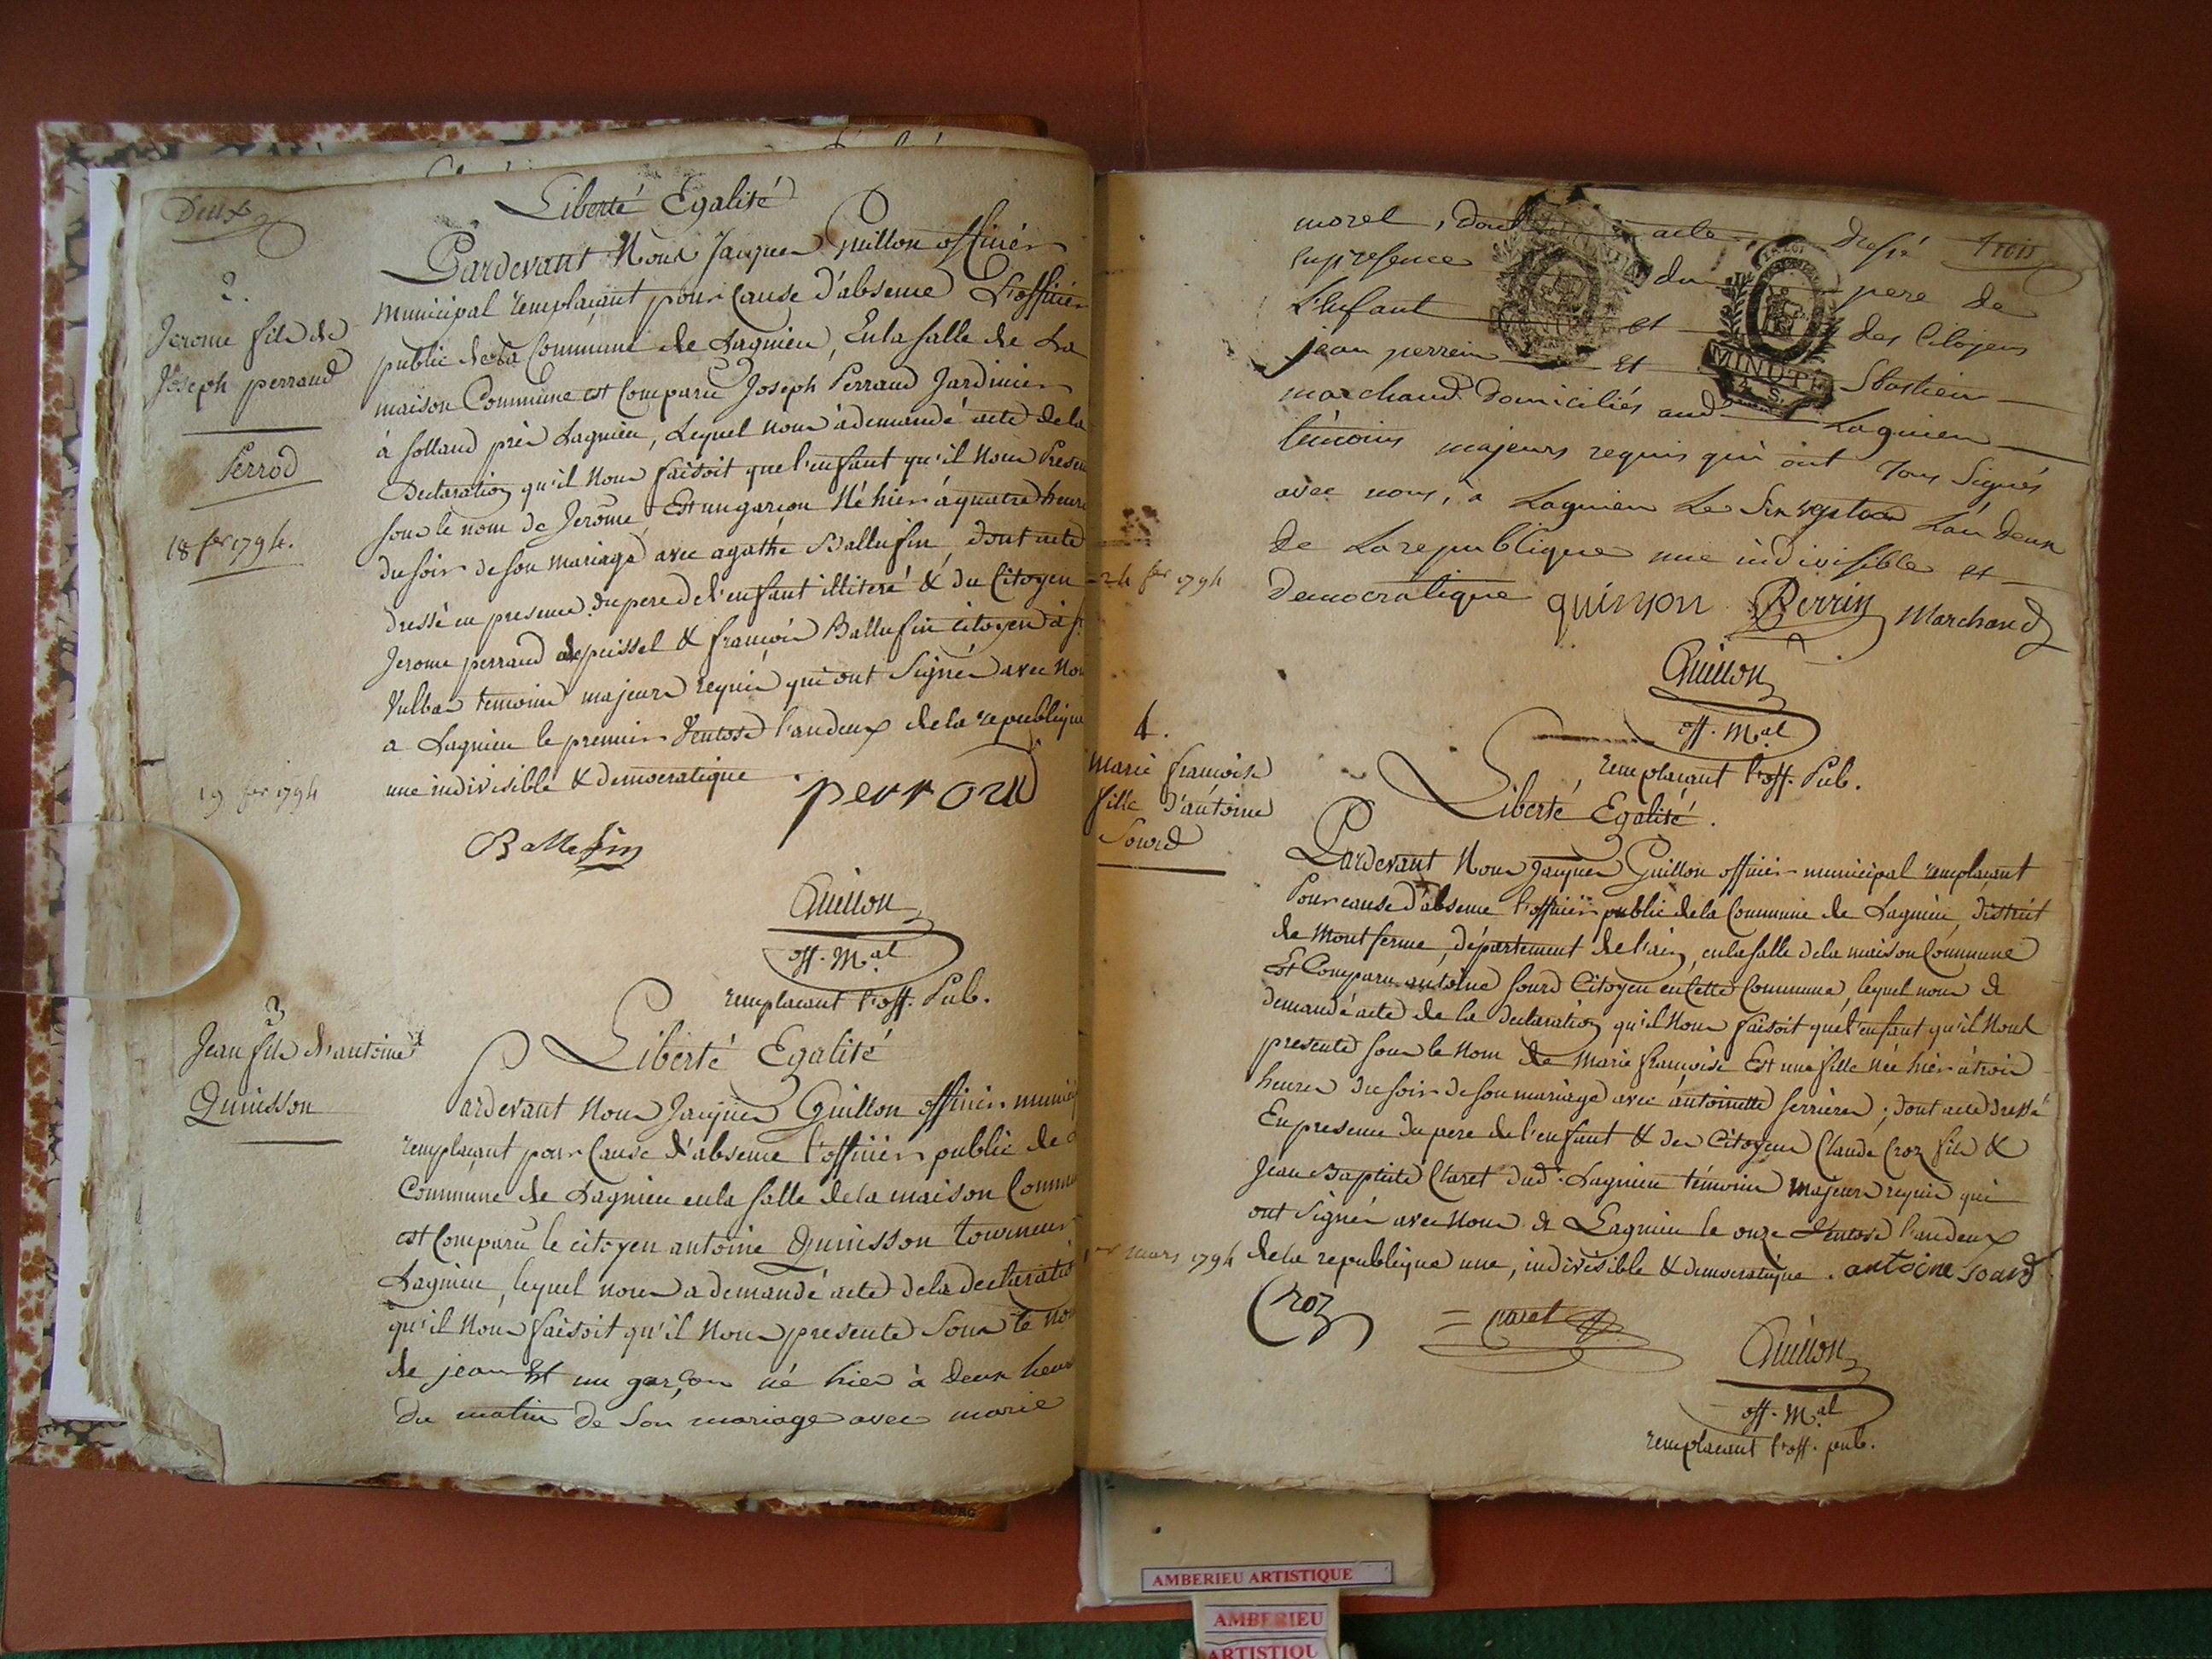 Deux
Liberté Egalité
Pardevant Nous Jacques Guillon officier
2.
Jerome fils de
Joseph perraud
Perrod
18 fer 1794.
municipal remplaçant pour Cause d'absence L'officier
public de la Commune de Lagnieu, En la salle de La
maison Commune est Comparu Joseph Perraud Jardinier
à Solland près Lagnieu, Lequel nous à demandé acte de la
Declaration qu'il Nous faisoit que l'enfant qu'il Nous
sous le nom de Jerôme, Est un garçon Né hier à quatre heure
du soir de son mariage avec agathe Ballufin, dont acte
dressé en presence du pere de l'enfant illiteré & du Citoyen
Jerome perraud & françois Ballufin citoyen à
Vulbas temoins majeurs requis qui ont Signés avec
a Lagnieu le premier Ventose l'an deux de la republique
une indivisible & democratique . perraud
19 fer 1794
Ballefin
Guillon
off. M.al
remplacant l'off. Pub.
3
Jean fils d'antoine
Quinsson
Liberté Egalité
Pardevant Nous Jacques Guillon officier
remplaçant pour Cause d'absence l'officier public de
Commune de Lagnieu en la salle de la maison
est Comparu le citoyen antoine Quinsson tourneur
Lagnieu, lequel nous a demandé acte de la
qu'il Nous faisoit qu'il Nous presente Sous le
de jean Est un garçon né hier à deux
du matin de son mariage avec marie
Trois
morel, dont acte dressé
en presence du pere de
L'enfant et des Citoyens
jean perrein et Sbastien
MINUTE
4 S.
marchand domiciliés aud Lagnieu
temoins majeurs requis qui ont tous Signés
avec nous, à Lagnieu Le Six L'an deux
de La republique une indivisible et
24 fer 1794
democratique quinson Perrin Marchand
Guillon
off. M.al
remplacant l'off. Pub.
4.
Marie françoise
fille d'antoine
Sourd
Liberté Egalité.
Pardevant Nous Jacques Guillon officier municipal remplacant
Pour cause d'absence l'officier public de la Commune de Lagnieu, district
de Montferme, département de l'ain, en la salle de la maison Commune
Est Comparu antoine sourd Citoyen en Cette Commune, lequel nous a
demandé acte de la declaration qu'il Nous faisoit que l'enfant qu'il Nous
presente sous le Nom de Marie françoise Est une fille née hier à trois
heures du soir de son mariage avec antoinette ferrieres ; dont acte dressé
En presence du pere de l'enfant & des Citoyens Claude Croz fils &
Jean Baptiste Claret dud. Lagnieu témoins Majeurs requis qui
ont Signés avec Nous a Lagnieu le onze Ventose l'an deux
1er mars 1794
de la republique une, indivisible & democratique . antoine sourd
Croz
Claret
Guillon
off. M.al
remplacant l'off. pub.
BOURG
AMBERIEU ARTISTIQUE
AMBERIEU